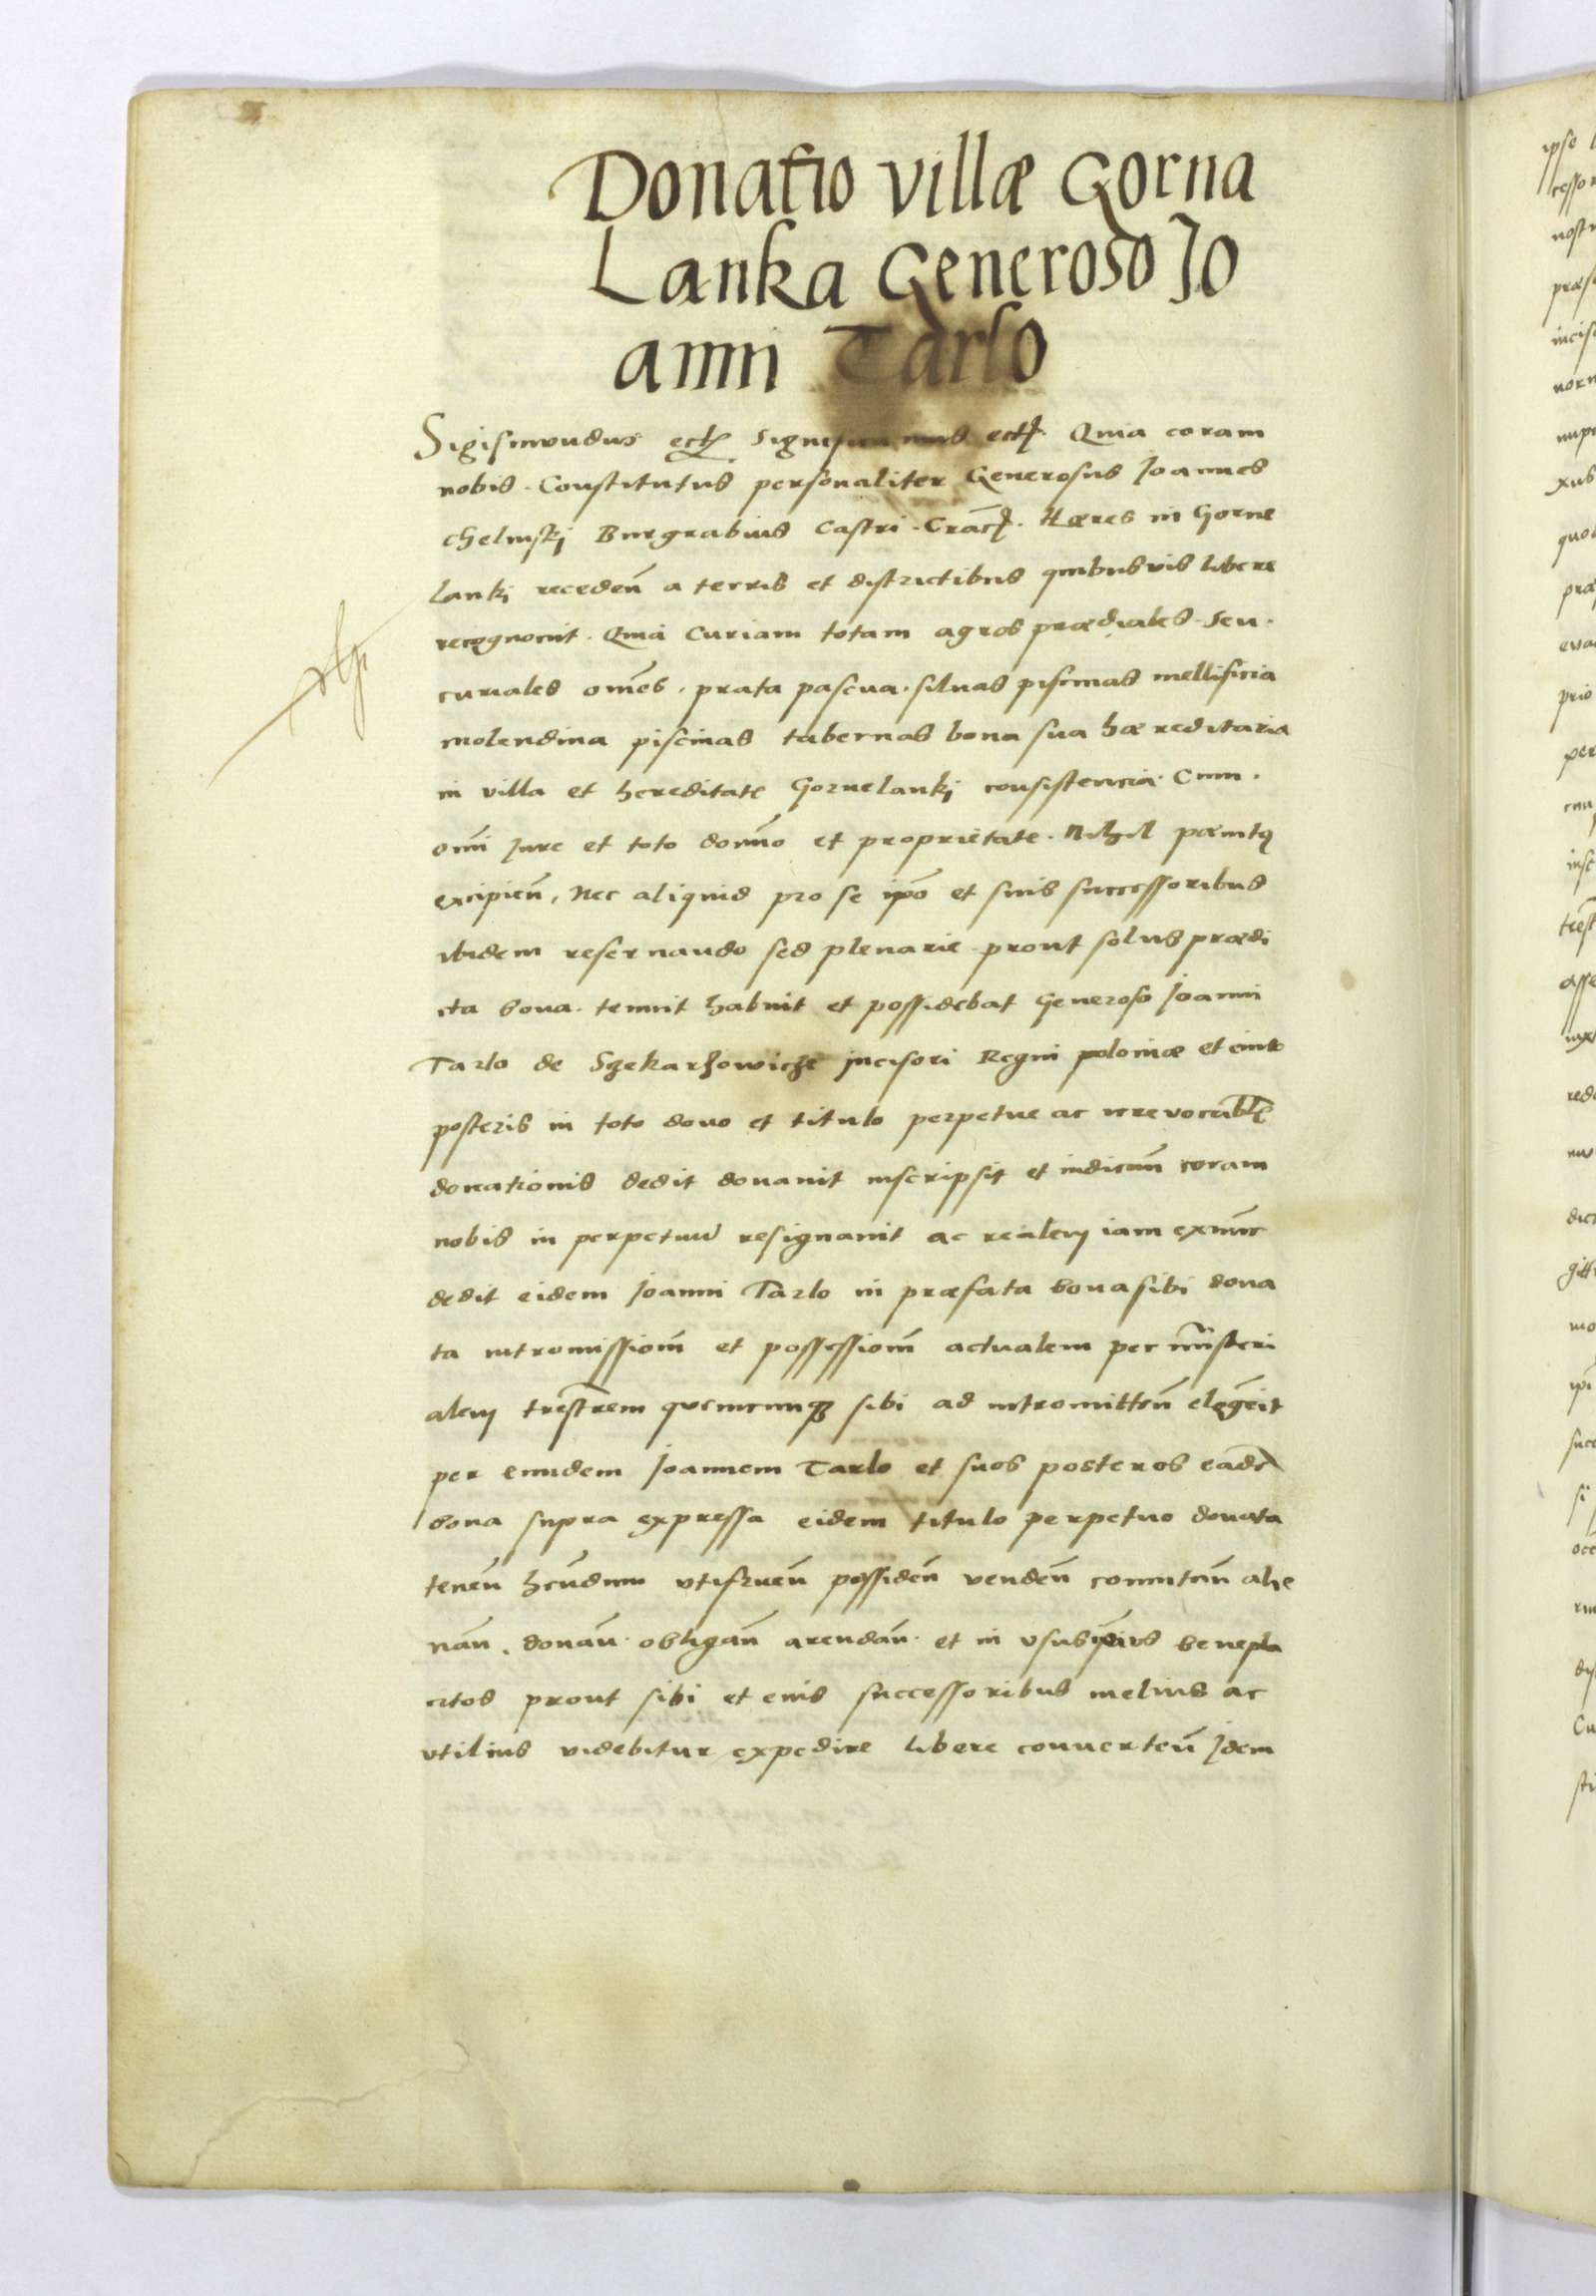 Donatio villæ Gorna
Lanka Generoso Jo
anni Tarlo
Sigismundus ectꝫ significamus ectꝫ. Quia coram
nobis. Constitutus personaliter Generosus Joannes
chelmskj Burgrabius Castri. Cracꝫ. Hæres in Gorne
lankj receden̄ a terris et districtibus quibusvis libere
recognovit. Quia Curiam totam agros prædiales seu.
curiales om̄es. prata pascua. siluas piscinas mellificia
molendina piscinas tabernas bona sua hæreditaria
in villa et hereditate Gornelankj consistencia. Cum.
om̄i Jure et toto domīo et proprietate. Nihil pœnitꝰ
excipien̄, nec aliquid pro se ip̄o et suis successoribus
ibidem reservando sed plenarie prout solus prædi
cta bona. tenuit habuit et possidebat Generoso Joanni
Tarlo de Szekarzowicze incisori Regni poloniæ et eius
posteris in toto dono et titulo perpetue ac irrevocabl̄e
donationis dedit donavit inscripsit et iudicial̄r coram
nobis in perpetuū resignavit ac realem iam exnunc
dedit eidem Joanni Tarlo in præfata bona sibi dona
ta intromissionē et possessionē actualem per mīnisteri
alem trestrem quemcunqꝫ sibi ad intromitten̄ elegerit
per eundem Joannem Tarlo et suos posteros eadē
bona supra expressa eidem titulo perpetuo donata
tenen̄ hēndum utifruen̄ possiden̄ venden̄ comutan̄ alie
nan̄. donan̄. obligan̄ arendan̄. et in usus ip̄ius benepla
citos prout sibi et eius successoribus melius ac
utilius videbitur expedire libere converten̄ Jdem